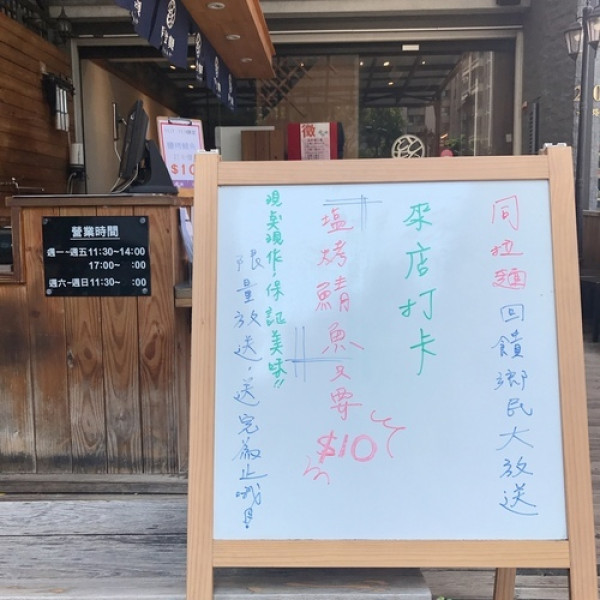 同拉麵回饋鄉民大放送
來店打卡
塩烤鯖魚只要
$10
現煎現作,保証美味!!
限量放送,送完為止哦!
營業時間
週一~週五11:30~14:00
17:00~ :00
週六~週日11:30~ :00
徵
$10